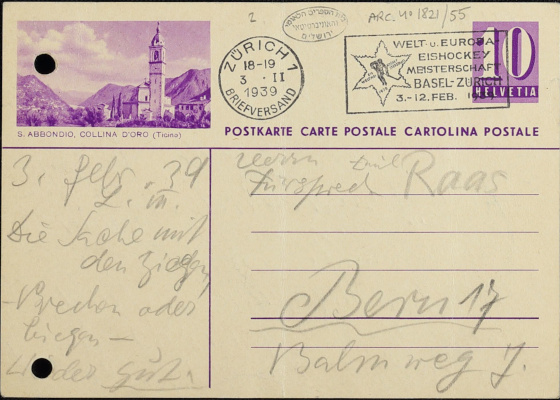 2.
ARC. Nº 1821/55
ZÜRICH 1
18-19
3. II
1939
BRIEFVERSAND
WELT- u. EUROPA-
EISHOCKEY
MEISTERSCHAFT
BASEL-ZÜRICH
3.-12. FEB. 1939
10
HELVETIA
S. ABBONDIO, COLLINA D'ORO (Ticino)
POSTKARTE CARTE POSTALE CARTOLINA POSTALE
Herrn Emil
Fürsprech Raas
Bern 17
Balmweg 7.
3. Febr. 39
L. M.
Die Sache mit
den
oder
biegen —
gut.